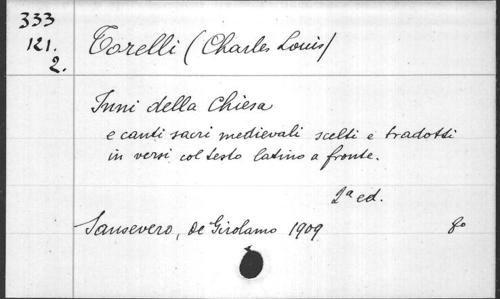 333
121.
2.
Torelli (Charles Louis)
Inni della Chiesa
e canti sacri medievali scelti e tradotti
in versi col testo latino a fronte.
2ª ed.
Sansevero, de Girolamo 1909 8o